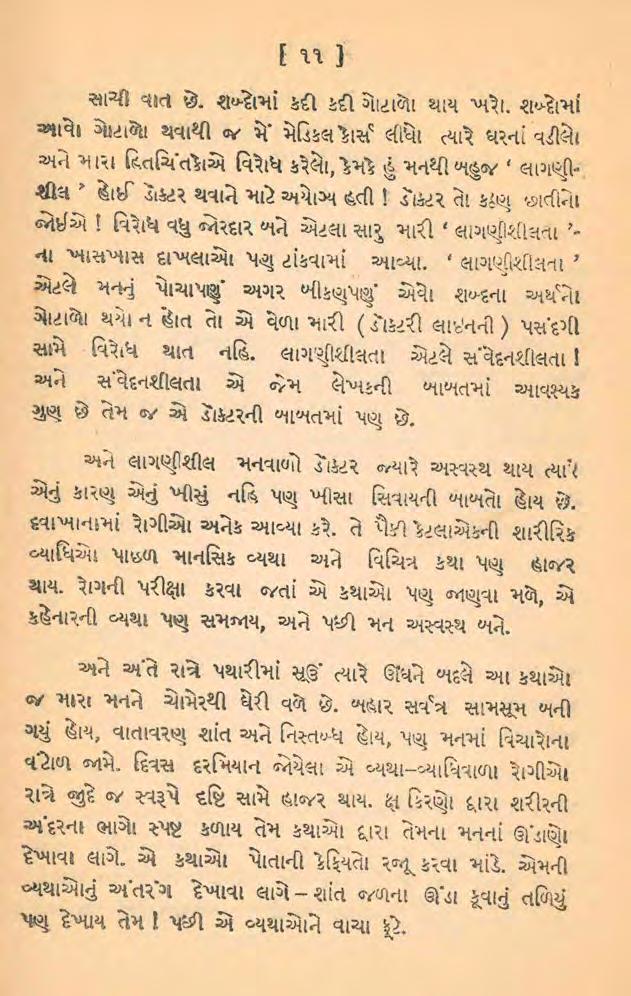 [ ૧૧ ]
સાચી વાત છે. શબ્દોમાં કદી કદી ગોટાળો થાય ખરો. શબ્દોમાં
આવો ગોટાળો થવાથી જ મેં મેડિકલ કોર્સ લીધો ત્યારે ઘરનાં વડીલો
અને મારા હિતચિંતકોએ વિરોધ કરેલો, કેમકે હું મનથી બહુજ ‘ લાગણી-
શીલ ’ હોઈ ડૉક્ટર થવાને માટે અયોગ્ય હતી ! ડૉક્ટર તો કઠણ છાતીનો
જોઈએ ! વિરોધ વધુ જોરદાર બને એટલા સારુ મારી ‘ લાગણીશીલતા ’-
ના ખાસખાસ દાખલાઓ પણ ટાંકવામાં આવ્યા. ‘ લાગણીશીલતા ’
એટલે મનનું પોચાપણું અગર બીકણપણું એવો શબ્દના અર્થનો
ગોટાળો થયો ન હોત તો એ વેળા મારી ( ડૉક્ટરી લાઇનની ) પસંદગી
સામે વિરોધ થાત નહિ. લાગણીશીલતા એટલે સંવેદનશીલતા !
અને સંવેદનશીલતા એ જેમ લેખકની બાબતમાં આવશ્યક
ગુણ છે તેમ જ એ ડૉક્ટરની બાબતમાં પણ છે.
અને લાગણીશીલ મનવાળો ડૉક્ટર જ્યારે અસ્વસ્થ થાય ત્યારે
એનું કારણ એનું ખીસું નહિ પણ ખીસા સિવાયની બાબતો હોય છે.
દવાખાનામાં રોગીઓ અનેક આવ્યા કરે. તે પૈકી કેટલાએકની શારીરિક
વ્યાધિઓ પાછળ માનસિક વ્યથા અને વિચિત્ર કથા પણ હાજર
થાય. રોગની પરીક્ષા કરવા જતાં એ કથાઓ પણ જાણવા મળે, એ
કહેનારની વ્યથા પણ સમજાય, અને પછી મન અસ્વસ્થ બને.
અને અંતે રાત્રે પથારીમાં સૂઉં ત્યારે ઊંઘને બદલે આ કથાઓ
જ મારા મનને ચોમેરથી ઘેરી વળે છે. બહાર સર્વત્ર સામસૂમ બની
ગયું હોય, વાતાવરણ શાંત અને નિસ્તબ્ધ હોય, પણ મનમાં વિચારોના
વંટોળ જામે. દિવસ દરમિયાન જોયેલા એ વ્યથા–વ્યાધિવાળા રોગીઓ
રાત્રે જુદે જ સ્વરૂપે દૃષ્ટિ સામે હાજર થાય. ક્ષ કિરણો દ્વારા શરીરની
અંદરના ભાગો સ્પષ્ટ કળાય તેમ કથાઓ દ્વારા તેમના મનનાં ઊંડાણો
દેખાવા લાગે. એ કથાઓ પોતાની કેફિયતો રજૂ કરવા માંડે. એમની
વ્યથાઓનું અંતરંગ દેખાવા લાગે – શાંત જળના ઊંડા કૂવાનું તળિયું
પણ દેખાય તેમ ! પછી એ વ્યથાઓને વાચા ફૂટે.